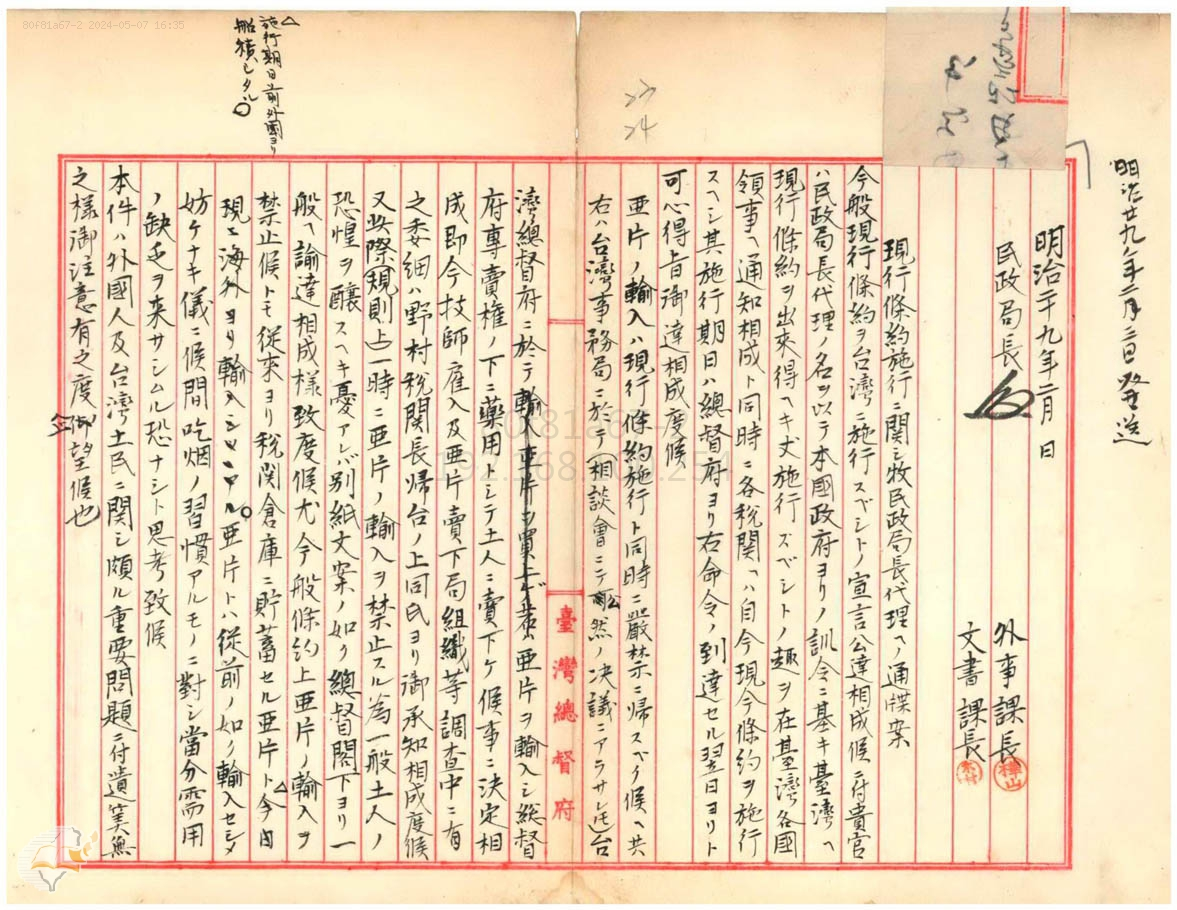 80f81a67-2 2024-05-07 16:35
明治廿九年二月三日発送
明治二十九年二月 日
民政局長
外事課長
文書課長
現行條約施行ニ関シ牧民政局長代理ヘノ通牒案
今般現行條約ヲ台湾ニ施行スベシトノ宣言公達相成候ニ付貴官
ハ民政局長代理ノ名ヲ以テ本國政府ヨリノ訓令ニ基キ臺湾ヘ
現行條約ヲ出来得ヘキ丈施行ズベシトノ趣ヲ在臺灣各國
領事ヘ通知相成ト同時ニ各税関ヘハ自今現今條約ヲ施行
スヘシ其施行期日ハ總督府ヨリ右命令ノ到達セル翌日ヨリト
可心得旨御達相成度候
亜片ノ輸入ハ現行條約施行ト同時ニ嚴禁ニ帰スベク候ヘ共
右ハ台湾事務局ニ於テ(相談會ニテ公然ノ决議ニアラサレ𪜈)台
湾總督府ニ於テ輸入亜片ヲ買上ゲ若クハ亜片ヲ輸入シ総督
府専賣権ノ下ニ薬用トシテ土人ニ賣下ケ候事ニ决定相
成即今技師雇入及亜片賣下局組織等調査中ニ有
之委細ハ野村税関長帰台ノ上同氏ヨリ御承知相成度候
又此際規則上一時ニ亜片ノ輸入ヲ禁止スル為一般土人ノ
恐惶ヲ釀スヘキ憂アレバ別紙文案ノ如ク總督閣下ヨリ一
般ヘ諭達相成様致度候尤今般條約上亜片ノ輸入ヲ
禁止候トモ從来ヨリ税関倉庫ニ貯蓄セル亜片ト今日
△施行期日前外國ヨリ
船積シタル○
現ニ海外ヨリ輸入シツヽアル亜片トハ從前ノ如ク輸入セシメ
妨ケナキ儀ニ候間吃烟ノ習慣アルモノニ對シ當分需用
ノ缺乏ヲ来サシムル恐ナシト思考致候
本件ハ外國人及台湾土民ニ関シ頗ル重要問題ニ付遺筭無
之様御注意有之度御望候也
臺灣總督府
23
24
80f81a67-2
192.168.10.254